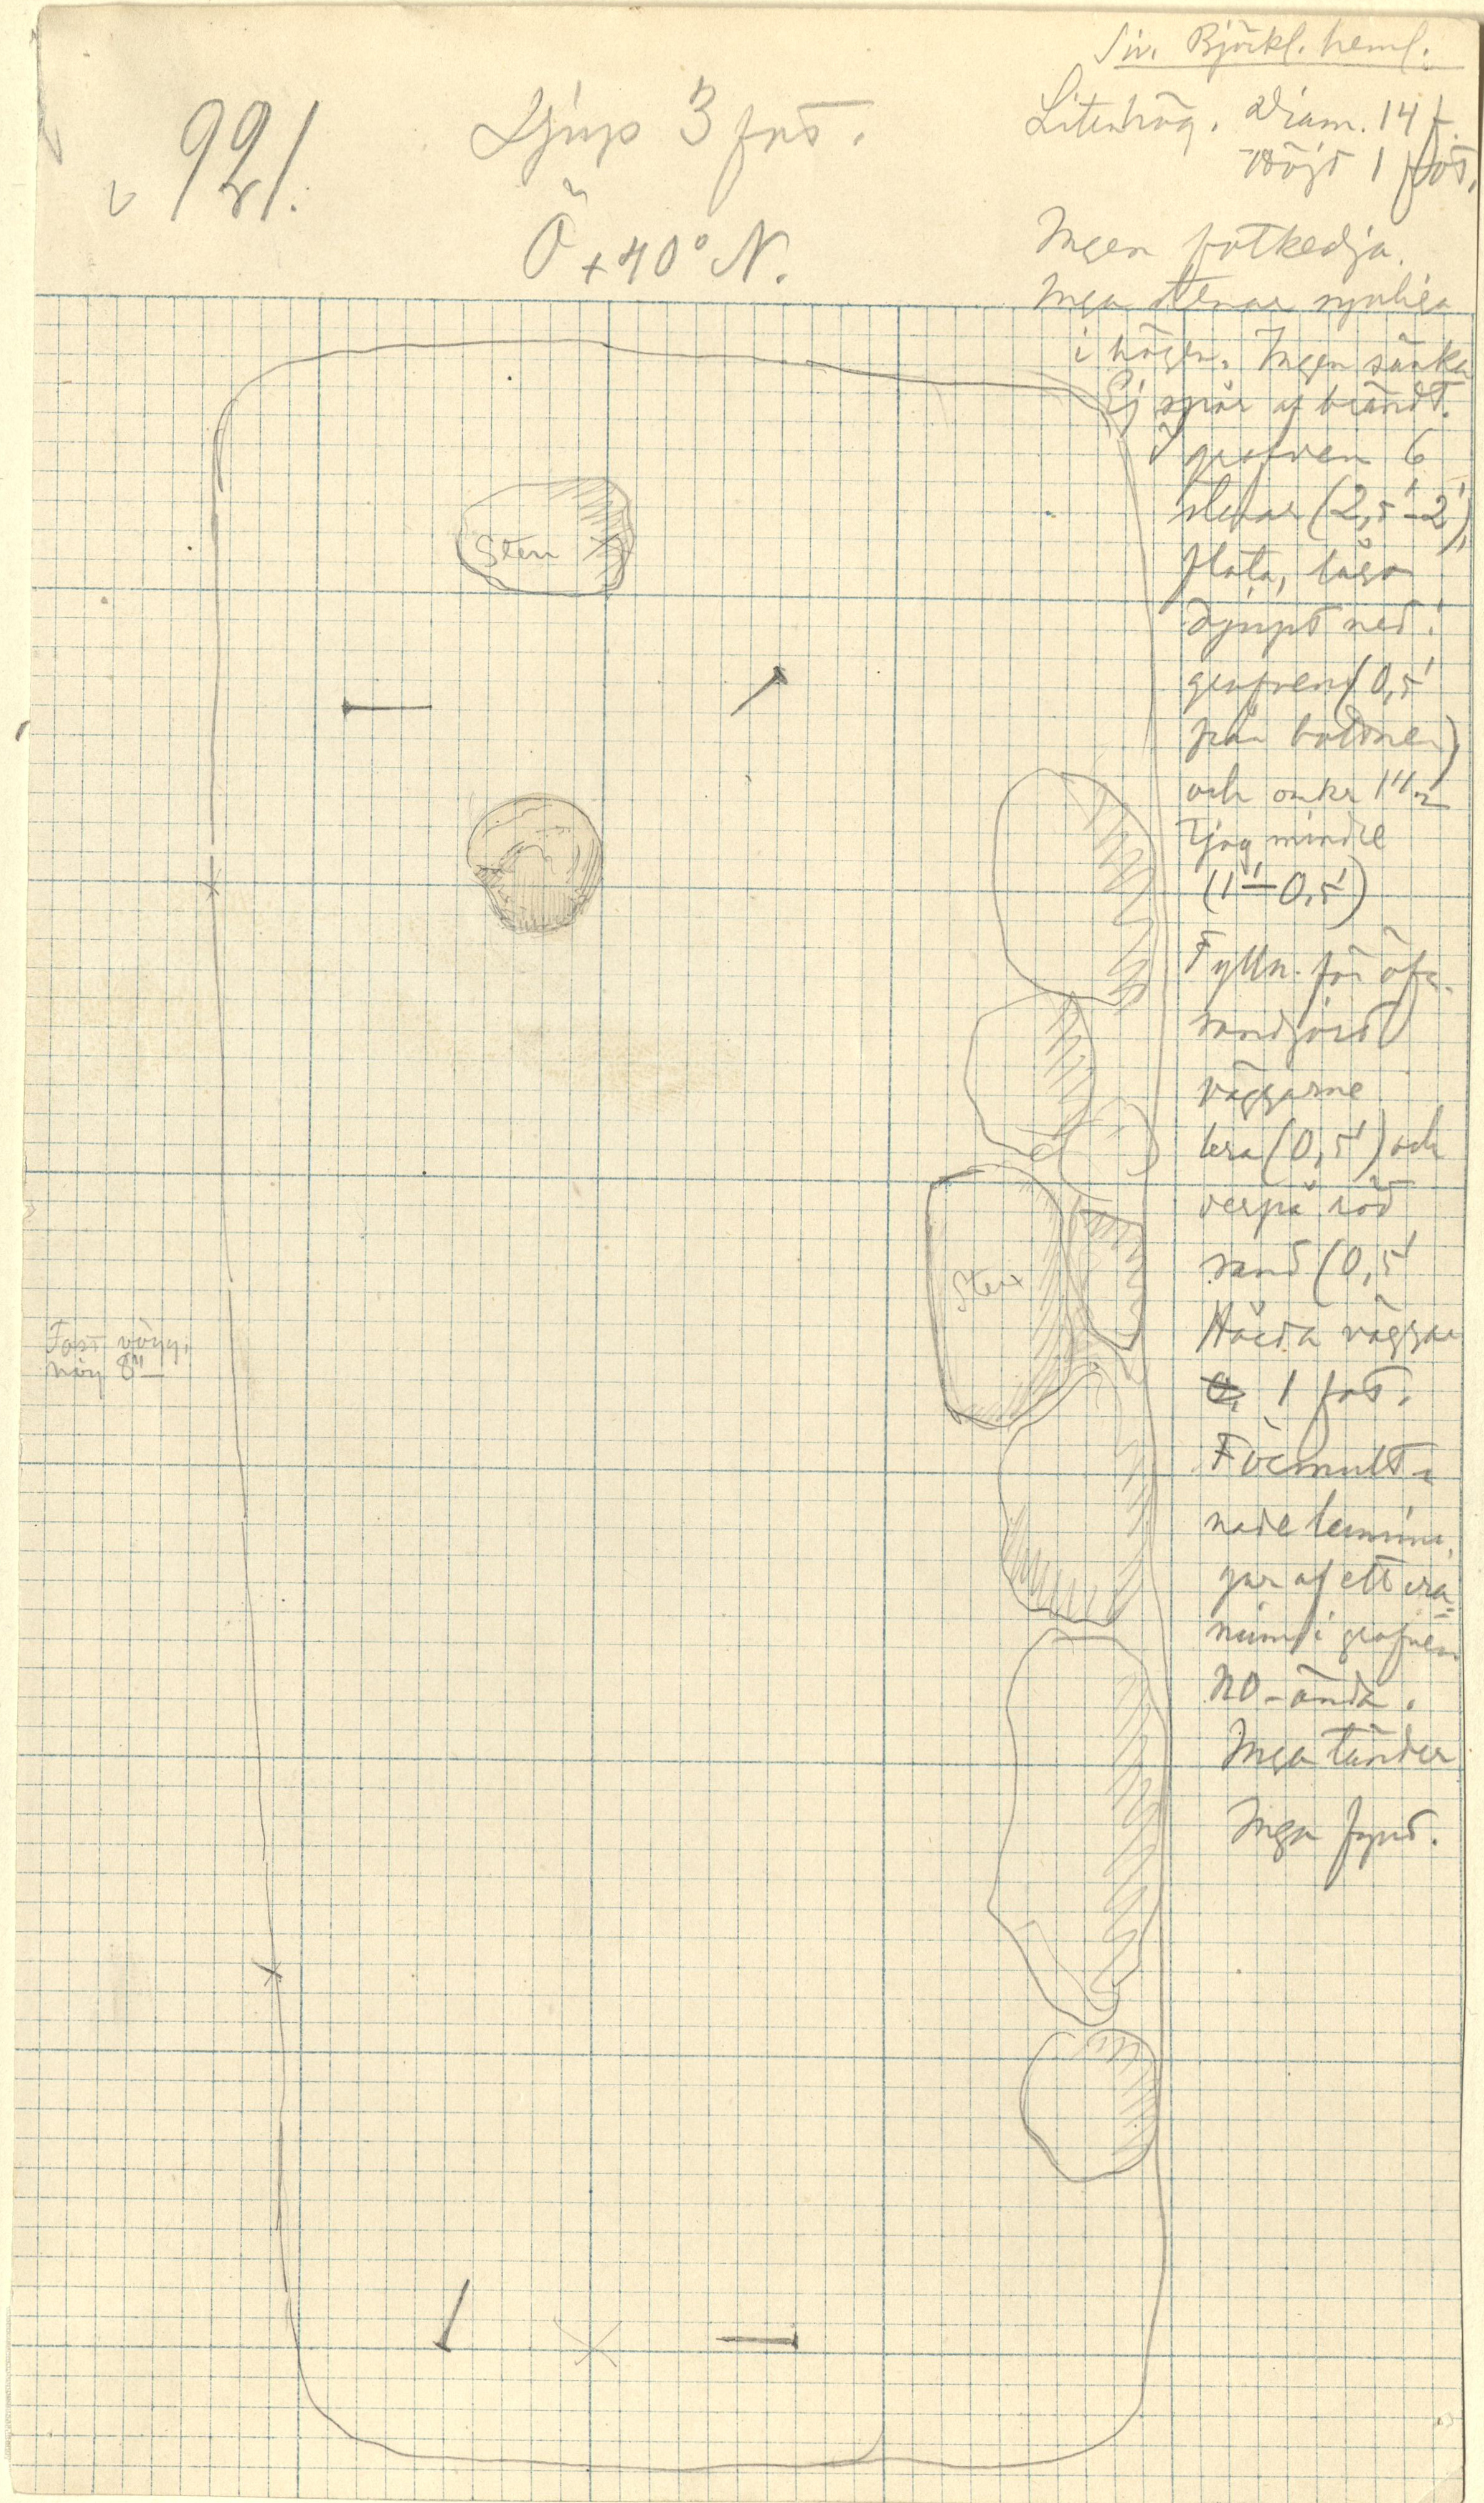 Björkl. heml.
921.
Djup 3 fot.
Ö + 40° N.
Liten hög. Diam. 14 f.
Höjd 1 fot.
Ingen fotkedja.
Inga stenar synliga
i högen. Ingen sänka
Ej spår af brändt.
I grafven 6
stenar (2,5'–2')
flata, lågo
djupt ned i
grafven (0,5'
från bottnen)
och omkr 1
tjog mindre
(1'–0,5')
Fylln.
sandjord
väggarne
lera (0,5') och
derpå röd
sand (0,5'
Hårda väggar
1 fot.
Förmult-
nade lemnin-
gar af ett cra-
nium i grafven
NO-ända.
Inga tänder
Inga fynd.
Sten
Sten
Fast vägg.
hög 8"